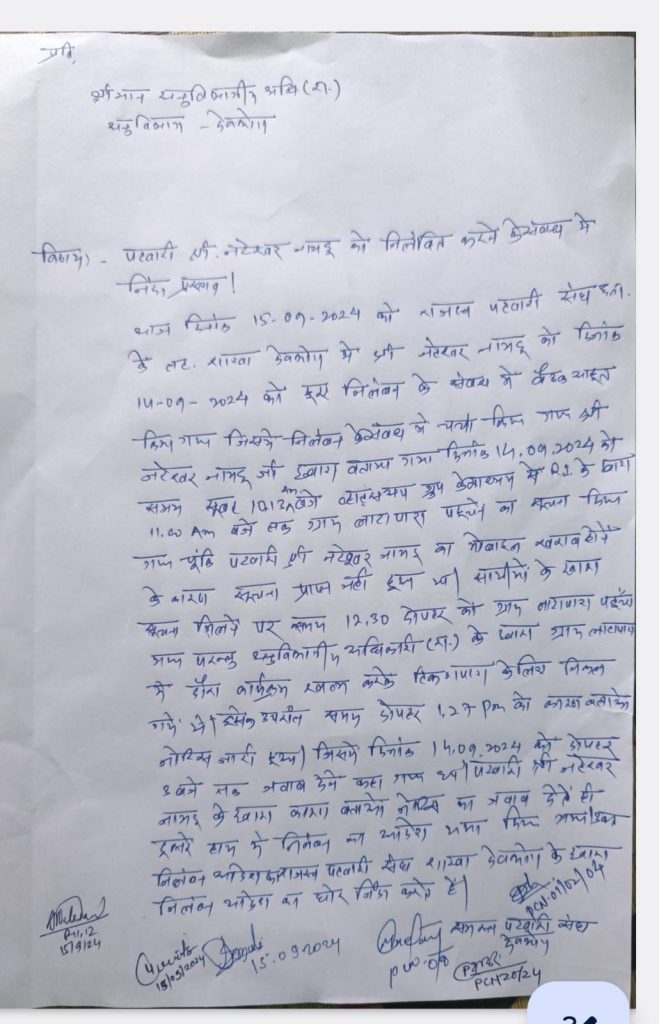 प्रति,
श्रीमान अनुविभागीय अधि (रा.)
अनुविभाग - देवभोग
विषय - पटवारी श्री नटेश्वर नायडू को निलंबित करने के संबंध में
निंदा प्रस्ताव।
आज दिनांक 15-09-2024 को राजस्व पटवारी संघ छ.ग.
के तह. शाखा देवभोग में श्री नटेश्वर नायडू को दिनांक
14-09-2024 को हुए निलंबन के संबंध में बैठक आहूत
किया गया जिसमें निलंबन के संबंध में चर्चा किया गया श्री
नटेश्वर नायडू जी द्वारा बताया गया दिनांक 14.09.2024 को
समय सुबह 10.13 Am बजे व्हाट्सअप ग्रुप के माध्यम से R.I के द्वारा
11.00 Am बजे तक ग्राम लाटापारा पहुंचने का सूचना किया
गया चूंकि पटवारी श्री नटेश्वर नायडू का मोबाइल खराब होने
के कारण सूचना प्राप्त नहीं हुआ था। साथीयों के द्वारा
सूचना मिलने पर समय 12.30 दोपहर को ग्राम लाटापारा पहुँचा
गया परन्तु अनुविभागीय अधिकारी (रा.) के द्वारा ग्राम लाटापारा
में दौरा कार्यक्रम खत्म करके के लिये निकल
गये थे। इसके उपरांत समय दोपहर 1.27 pm को कारण बताओ
नोटिस जारी हुआ। जिसमें दिनांक 14.09.2024 को दोपहर
3 बजे तक जवाब देने कहा गया था। पटवारी श्री नटेश्वर
नायडू के द्वारा कारण बताओ नोटिस का जवाब देते ही
दूसरे हाथ में निलंबन का आदेश थमा दिया गया।
निलंबन आदेश का राजस्व पटवारी संघ शाखा देवभोग के द्वारा
निलंबन आदेश का घोर निंदा करते है।
PCN-01/02/04
समस्त पटवारी संघ
देवभोग
15/9/24
15/09/2024
15.09.2024
PCN 20/24